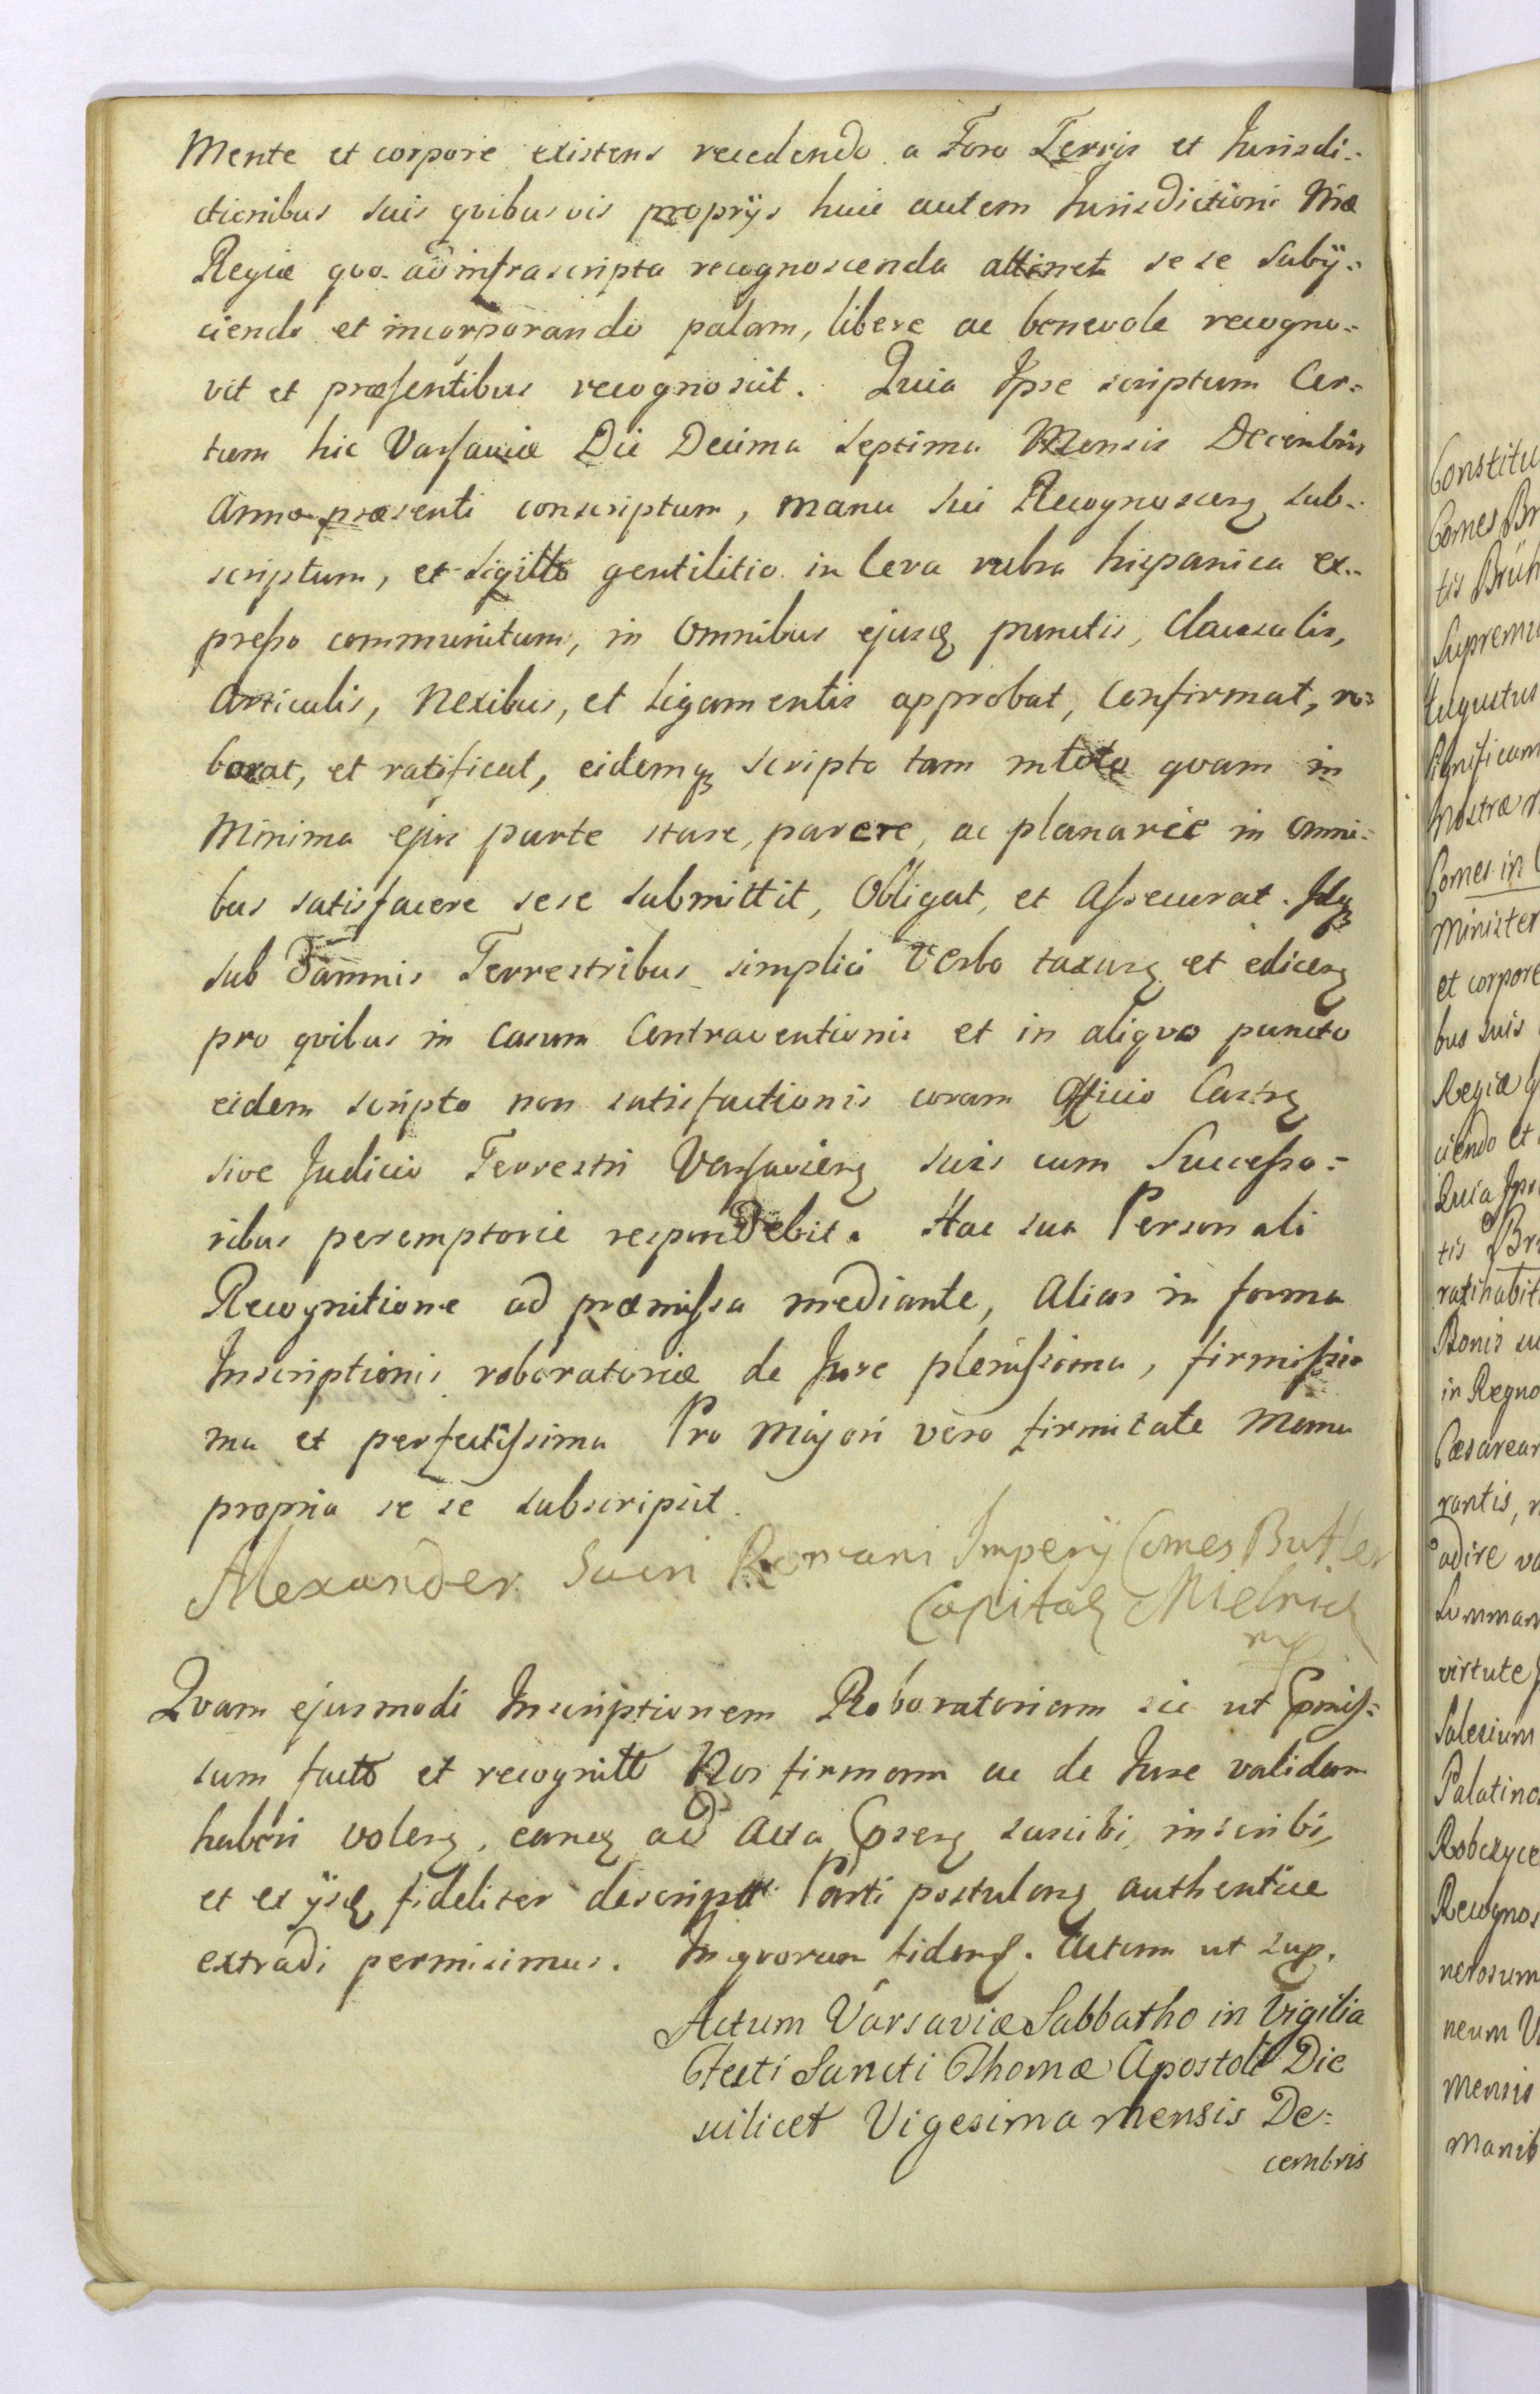 Mente et corpore existens recedendo a Foro Terris et Jurisdi=
ctionibus suis qvibusvis proprijs huic autem Jurisdictioni Nræ
Regiæ qvo ad infrascripta recognoscenda attinet se se subij=
ciendo et incorporando palam, libere ac benevole recogno=
vit et præsentibus recognoscit. Quia Ipse scriptum Cer=
tum hic Varsaviæ Die Decima Septima Mensis Decembris
Anno præsenti conscriptum, manu sui Recognoscenꝫ sub=
scriptum, et Sigillo gentilitio in Cera rubra hispanica ex=
presso communitum, in omnibus ejusqꝫ punctis, Clausulis,
Articulis, Nexibus, et Ligamentis approbat, Confirmat, ro=
borat, et ratificat, eidemqꝫ scripto tam in toto qvam in
Minima ejus parte stare, parere, ac planarie in omni=
bus satisfacere sese submittit, Obligat, et Assecurat. Idqꝫ
sub Damnis Terrestribus simplici Verbo taxanꝫ et edicenꝫ
pro qvibus in Casum Contraventionis et in aliqvo puncto
eidem scripto non satisfactionis coram Officio Castrꝫ
sive Judicio Terrestri Varsavienꝫ suis cum Successo=
ribus peremptorie respondebit. Hac sua Personali
Recognitione ad præmissa mediante, Alias in forma
Inscriptionis roboratoriæ de Jure plenissima, firmissi=
ma et perfectissima Pro Majori vero firmitate Manu
propria se se subscripsit.
Alexander Sacri Romani Imperij Comes Butler
Capitaꝫ Mielnicꝫ
mp
Qvam ejusmodi Inscriptionem Roboratoriam sic ut Pmis=
sum facto et recognitto Nos firmam ac de Jure validam
haberi volenꝫ, eamqꝫ ad Acta Psenꝫ suscibi, inscribi,
et ex ijsqꝫ fideliter descriptt Parti postulanꝫ authentice
extradi permisimus. In qvorum fidemꝫ. Actum ut sup.
Actum Varsaviæ Sabbatho in Vigilia
Festi Sancti Thomæ Apostoli Die
scilicet Vigesima mensis De=
cembris
Constitu
Comes Br
tis Brüh
Supremu
Augustus
significam
Nostræ
Comes in
Minister
et corpore
bus suis
Regiæ q
ciendo et
Quia Ipse
tis Br
ratihabit
Bonis su
in Regno
Cæsarear
rantis,
adire va
Summam
virtute
Salesium
Palatino
Robczyce
Recognos
nerosum
neum
Mensis
Manib